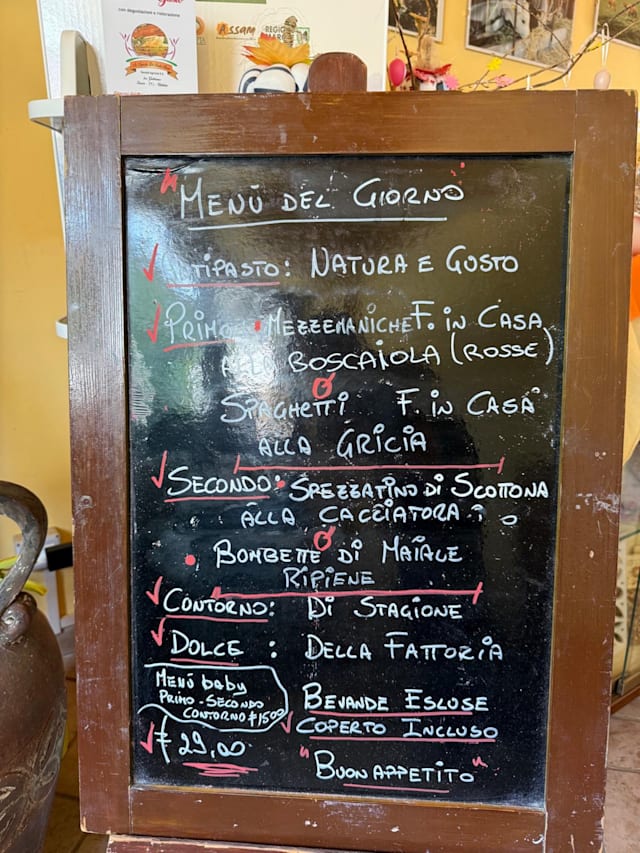 con degustazioni e ristorazione
Assam
REGIO
"MENÙ DEL GIORNO"
ANTIPASTO: NATURA E GUSTO
PRIMO: MEZZEMANICHE F. IN CASA
ALLA BOSCAIOLA (ROSSE)
O
SPAGHETTI F. IN CASA
ALLA GRICIA
SECONDO: SPEZZATINO DI SCOTTONA
ALLA CACCIATORA
O
BOMBETTE DI MAIALE
RIPIENE
CONTORNO: DI STAGIONE
DOLCE : DELLA FATTORIA
MENÙ baby
PRIMO - SECONDO
CONTORNO € 15,00
BEVANDE ESCLUSE
COPERTO INCLUSO
€ 29,00
"BUON APPETITO"